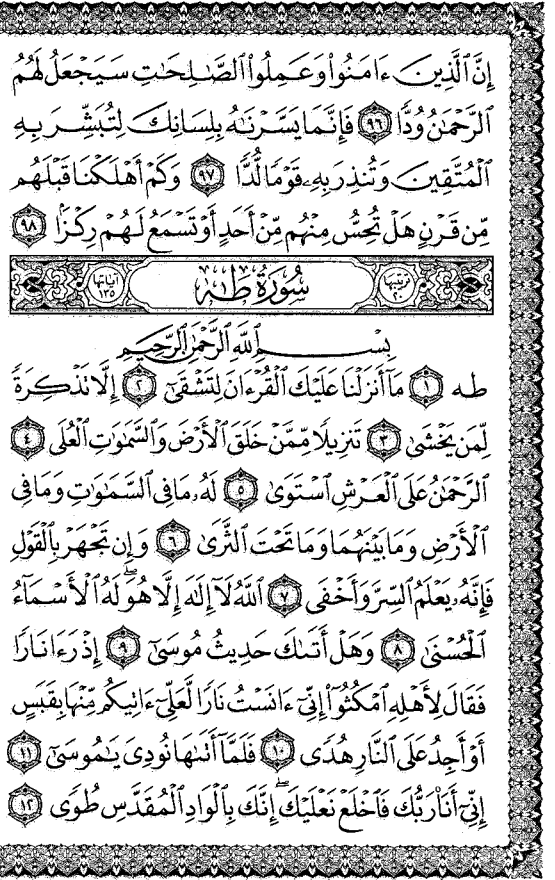 إِنَّ ٱلَّذِينَ ءَامَنُوا۟ وَعَمِلُوا۟ ٱلصَّٰلِحَٰتِ سَيَجْعَلُ لَهُمُ
ٱلرَّحْمَٰنُ وُدًّا ٩٦ فَإِنَّمَا يَسَّرْنَٰهُ بِلِسَانِكَ لِتُبَشِّرَ بِهِ
ٱلْمُتَّقِينَ وَتُنذِرَ بِهِۦ قَوْمًا لُّدًّا ٩٧ وَكَمْ أَهْلَكْنَا قَبْلَهُم
مِّن قَرْنٍ هَلْ تُحِسُّ مِنْهُم مِّنْ أَحَدٍ أَوْ تَسْمَعُ لَهُمْ رِكْزًۢا ٩٨
ترتيبها ٢٠ سُورَةُ طه آياتها ١٣٥
بِسْمِ ٱللَّهِ ٱلرَّحْمَٰنِ ٱلرَّحِيمِ
طه ١ مَآ أَنزَلْنَا عَلَيْكَ ٱلْقُرْءَانَ لِتَشْقَىٰٓ ٢ إِلَّا تَذْكِرَةً
لِّمَن يَخْشَىٰ ٣ تَنزِيلًا مِّمَّنْ خَلَقَ ٱلْأَرْضَ وَٱلسَّمَٰوَٰتِ ٱلْعُلَى ٤
ٱلرَّحْمَٰنُ عَلَى ٱلْعَرْشِ ٱسْتَوَىٰ ٥ لَهُۥ مَا فِى ٱلسَّمَٰوَٰتِ وَمَا فِى
ٱلْأَرْضِ وَمَا بَيْنَهُمَا وَمَا تَحْتَ ٱلثَّرَىٰ ٦ وَإِن تَجْهَرْ بِٱلْقَوْلِ
فَإِنَّهُۥ يَعْلَمُ ٱلسِّرَّ وَأَخْفَى ٧ ٱللَّهُ لَآ إِلَٰهَ إِلَّا هُوَۖ لَهُ ٱلْأَسْمَآءُ
ٱلْحُسْنَىٰ ٨ وَهَلْ أَتَىٰكَ حَدِيثُ مُوسَىٰٓ ٩ إِذْ رَءَا نَارًا
فَقَالَ لِأَهْلِهِ ٱمْكُثُوٓا۟ إِنِّىٓ ءَانَسْتُ نَارًا لَّعَلِّىٓ ءَاتِيكُم مِّنْهَا بِقَبَسٍ
أَوْ أَجِدُ عَلَى ٱلنَّارِ هُدًى ١٠ فَلَمَّآ أَتَىٰهَا نُودِىَ يَٰمُوسَىٰٓ ١١
إِنِّىٓ أَنَا۠ رَبُّكَ فَٱخْلَعْ نَعْلَيْكَۖ إِنَّكَ بِٱلْوَادِ ٱلْمُقَدَّسِ طُوًى ١٢